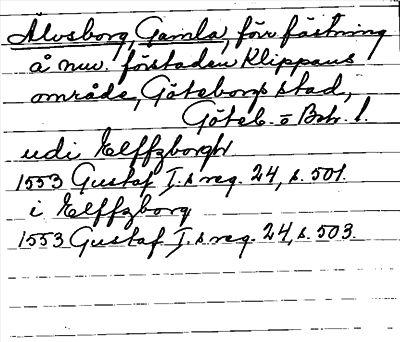 Älvsborg, Gamla, förr fästning
å nuv. förstaden Klippans
område, Göteborgs stad,
Göteb. o Boh. l.
udi Elffzborgh
1553 Gustaf I.s reg. 24, s. 501.
i Elffzborg
1553 Gustaf I.s reg. 24, s. 503.